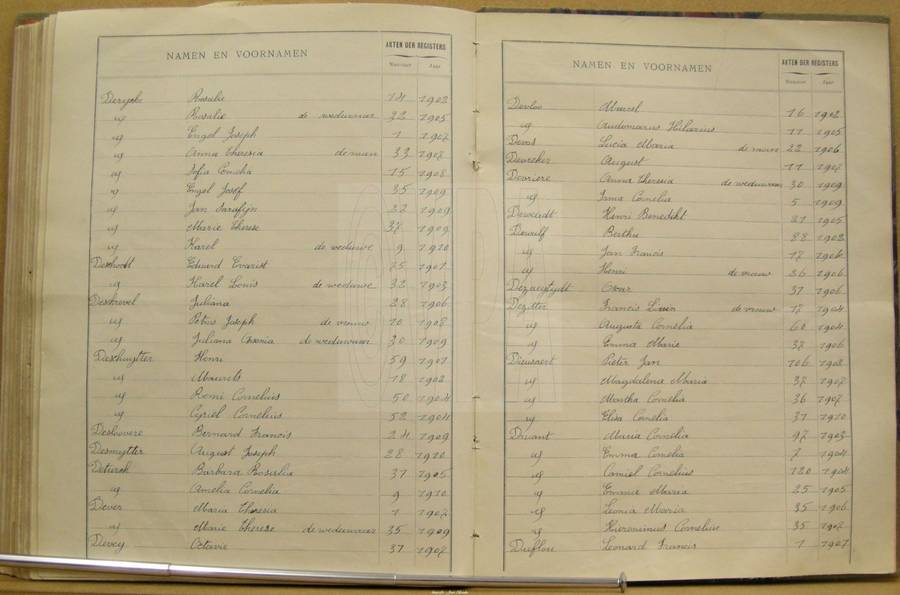 NAMEN EN VOORNAMEN AKTEN DER REGISTERS
Nummer Jaar
Derycke Rosalie 14 1902
id Rosalie de weduwnaar 22 1905
id Engel Joseph 1 1907
id Anna Theresia de man 33 1907
id Sofia Cornelia 15 1908
id Engel Josef 35 1909
id Jan Serafijn 22 1909
id Marie Therese 37 1909
id Karel de weduwe 9 1910
Deschodt Eduard Evarist 75 1901
id Karel Louis de weduwe 32 1903
Deschrevel Juliana 28 1906
id Petrus Joseph de vrouw 10 1908
id Juliana de weduwnaar 30 1909
Deschuytter Henri 59 1901
id Maurits 18 1902
id Remi Cornelius 50 1904
id Cyriel Cornelius 52 1904
Desloovere Bernard Francis 24 1909
Desmytter August Joseph 28 1910
Deturck Barbara Rosalia 37 1905
id Amelia Cornelia 9 1910
Dever Maria Theresia 1 1902
id Marie Therese de weduwnaar 35 1909
Devey Octavie 37 1902
NAMEN EN VOORNAMEN AKTEN DER REGISTERS
Nummer Jaar
Devloo Marcel 16 1902
id Audomarus Hilarius 11 1905
Devos Lucia Maria de man 22 1906
August 11 1907
Devriere Anna Theresia de weduwnaar 30 1909
id Irma Cornelia 5 1909
Henri Benedikt 21 1905
Dewulf Bertha 88 1902
id Jan Francis 17 1906
id Henri de vrouw 26 1906
Oscar 37 1906
Dezitter Francis de vrouw 17 1904
id Augusta Cornelia 60 1904
id Emma Marie 37 1906
Dieusaert Pieter Jan 106 1902
id Magdalena Maria 37 1907
id Martha Cornelia 36 1907
id Elisa Cornelia 31 1910
Maria Cornelia 97 1903
id Emma Cornelia 7 1904
id Camiel Cornelius 120 1904
id Emma Maria 25 1905
id Leonia Maria 35 1906
id Hieronimus Cornelius 35 1907
Duflou Leonard Francis 1 1901